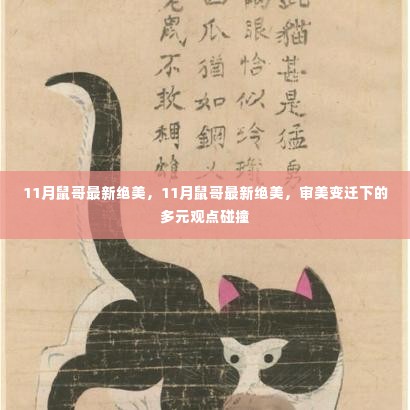 此貓甚是猛勇
眼恰似玲
爪猶如鋼
鼠不敢稱雄
11月鼠哥最新绝美，11月鼠哥最新绝美，审美变迁下的
多元观点碰撞